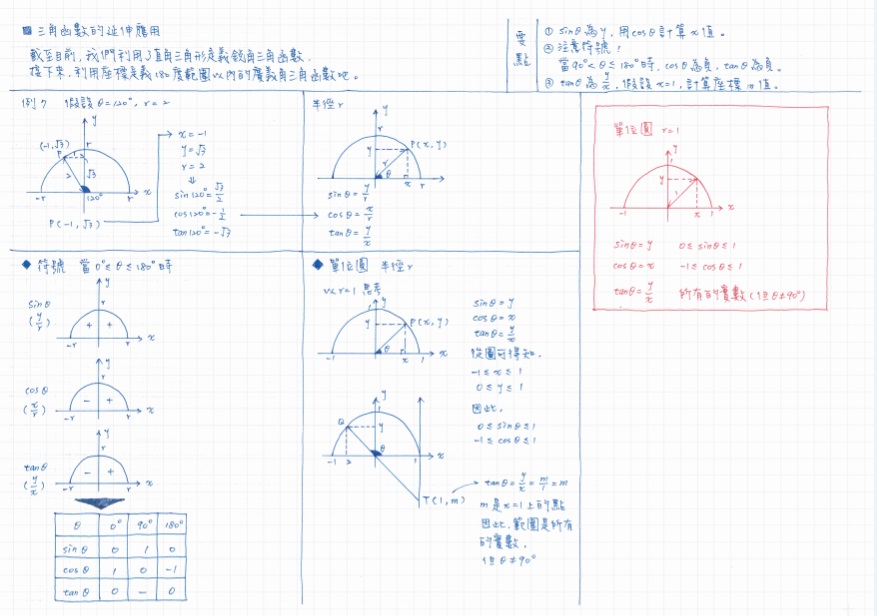 ■ 三角函數的延伸應用
截至目前,我們利用直角三角形定義銳角三角函數.
接下來,利用座標定義180度範圍以內的廣義角三角函數吧。
要點
① sinθ為y,用cosθ計算x值。
② 注意符號!
當90°<θ≤180°時,cosθ為負,tanθ為負。
③ tanθ為y/x,假設x=1,計算座標的值。
例 假設θ=120°, r=2
y
(-1,√3)
P
r
2
√3
120°
-r
r
x
P(-1,√3)
x=-1
y=√3
r=2
⇓
sin120°=√3/2
cos120°=-1/2
tan120°=-√3
半徑r
y
r
y
P(x,y)
r
θ
x
r
x
sinθ=y/r
cosθ=x/r
tanθ=y/x
單位圓 r=1
y
1
y
1
-1
x
1
x
sinθ=y 0≤sinθ≤1
cosθ=x -1≤cosθ≤1
tanθ=y/x 所有的實數(但θ≠90°)
◆ 符號 當0°≤θ≤180°時
sinθ
(y/r)
y
r
+ +
-r
r
x
cosθ
(x/r)
y
r
- +
-r
r
x
tanθ
(y/x)
y
r
- +
-r
r
x
θ 0° 90° 180°
sinθ 0 1 0
cosθ 1 0 -1
tanθ 0 - 0
◆ 單位圓 半徑r
以r=1思考
y
1
y
P(x,y)
θ
-1
x
1
x
sinθ=y
cosθ=x
tanθ=y/x
從圖可得知,
-1≤x≤1
0≤y≤1
因此,
0≤sinθ≤1
-1≤cosθ≤1
y
1
Q
y
θ
-1
1
x
T(1,m)
tanθ=y/x=m/1=m
m是x=1上的點
因此,範圍是所有
的實數,
但θ≠90°